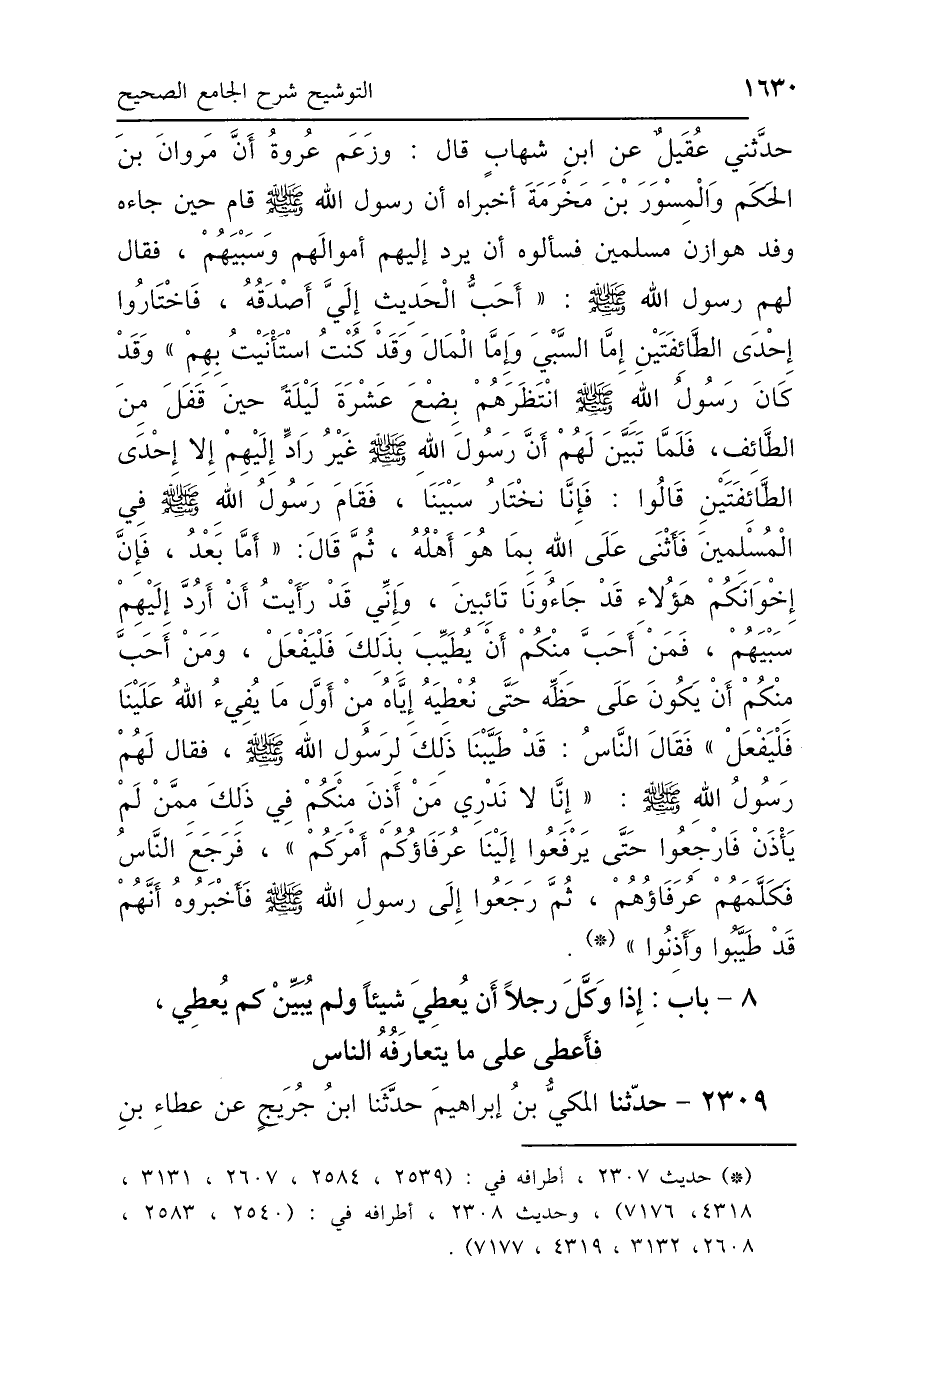 ١٦٣٠ التوشيح شرح الجامع الصحيح
حدَّثني عُقَيلٌ عن ابنِ شهابٍ قال : وزَعَم عُروةُ أَنَّ مَروانَ بنَ
الحَكَم وَالْمِسْوَرَ بْنَ مَخْرَمَةَ أخبراه أن رسول الله ﷺ قام حين جاءه
وفد هوازن مسلمين فسألوه أن يرد إليهم أموالَهم وَسَبْيَهُمْ ، فقال
لهم رسول الله ﷺ : « أَحَبُّ الْحَديثِ إِلَيَّ أَصْدَقُهُ ، فَاخْتَارُوا
إِحْدَى الطَّائِفَتَيْنِ إِمَّا السَّبْيَ وَإِمَّا الْمَالَ وَقَدْ كُنْتُ اسْتَأْنَيْتُ بِهِمْ » وَقَدْ
كَانَ رَسُولُ الله ﷺ انْتَظَرَهُمْ بِضْعَ عَشْرَةَ لَيْلَةً حينَ قَفَلَ مِنَ
الطَّائِفِ، فَلَمَّا تَبَيَّنَ لَهُمْ أَنَّ رَسُولَ اللهِ ﷺ غَيْرُ رَادٍّ إِلَيْهِمْ إلا إِحْدَى
الطَّائِفَتَيْنِ قَالُوا : فَإِنَّا نختَارُ سَبْيَنَا ، فَقَامَ رَسُولُ الله ﷺ فِي
الْمُسْلِمينَ فَأَثْنَى عَلَى اللهِ بِمَا هُوَ أَهْلُهُ ، ثُمَّ قَالَ: « أَمَّا بَعْدُ ، فَإِنَّ
إِخْوَانَكُمْ هَؤُلاءِ قَدْ جَاءُونَا تَائِبِينَ ، وَإِنِّي قَدْ رَأَيْتُ أَنْ أَرُدَّ إِلَيْهِمْ
سَبْيَهُمْ ، فَمَنْ أَحَبَّ مِنْكُمْ أَنْ يُطَيِّبَ بِذَلِكَ فَلْيَفْعَلْ ، وَمَنْ أَحَبَّ
مِنْكُمْ أَنْ يَكُونَ عَلَى حَظِّهِ حَتَّى نُعْطِيَهُ إِيَّاهُ مِنْ أَوَّلِ مَا يُفِيءُ اللهُ عَلَيْنَا
فَلْيَفْعَلْ » فَقَالَ النَّاسُ : قَدْ طَيَّبْنَا ذَلِكَ لِرَسُولِ اللهِ ﷺ ، فقال لَهُمْ
رَسُولُ اللهِ ﷺ : « إِنَّا لا نَدْرِي مَنْ أَذِنَ مِنْكُمْ فِي ذَلِكَ مِمَّنْ لَمْ
يَأْذَنْ فَارْجِعُوا حَتَّى يَرْفَعُوا إِلَيْنَا عُرَفَاؤُكُمْ أَمْرَكُم » ، فَرَجَعَ النَّاسُ
فَكَلَّمَهُمْ عُرَفَاؤُهُمْ ، ثُمَّ رَجَعُوا إِلَى رسولِ الله ﷺ فَأَخْبَرُوهُ أَنَّهُمْ
قَدْ طَيَّبُوا وَأَذِنُوا » (*) .
٨ – باب : إِذا وَكَّلَ رجلاً أَن يُعطِيَ شيئاً ولم يُبَيِّنْ كم يُعطِي ،
فأَعطى على ما يتعارَفُهُ الناس
٢٣٠٩ – حدّثنا المكيُّ بنُ إبراهيمَ حدَّثَنا ابنُ جُرَيجٍ عن عطاءِ بنِ
(*) حديث ٢٣٠٧ ، أطرافه في : (٢٥٣٩ ، ٢٥٨٤ ، ٢٦٠٧ ، ٣١٣١ ،
٤٣١٨، ٧١٧٦) ، وحديث ٢٣٠٨ ، أطرافه في : (٢٥٤٠ ، ٢٥٨٣ ،
٢٦٠٨، ٣١٣٢ ، ٤٣١٩ ، ٧١٧٧) .